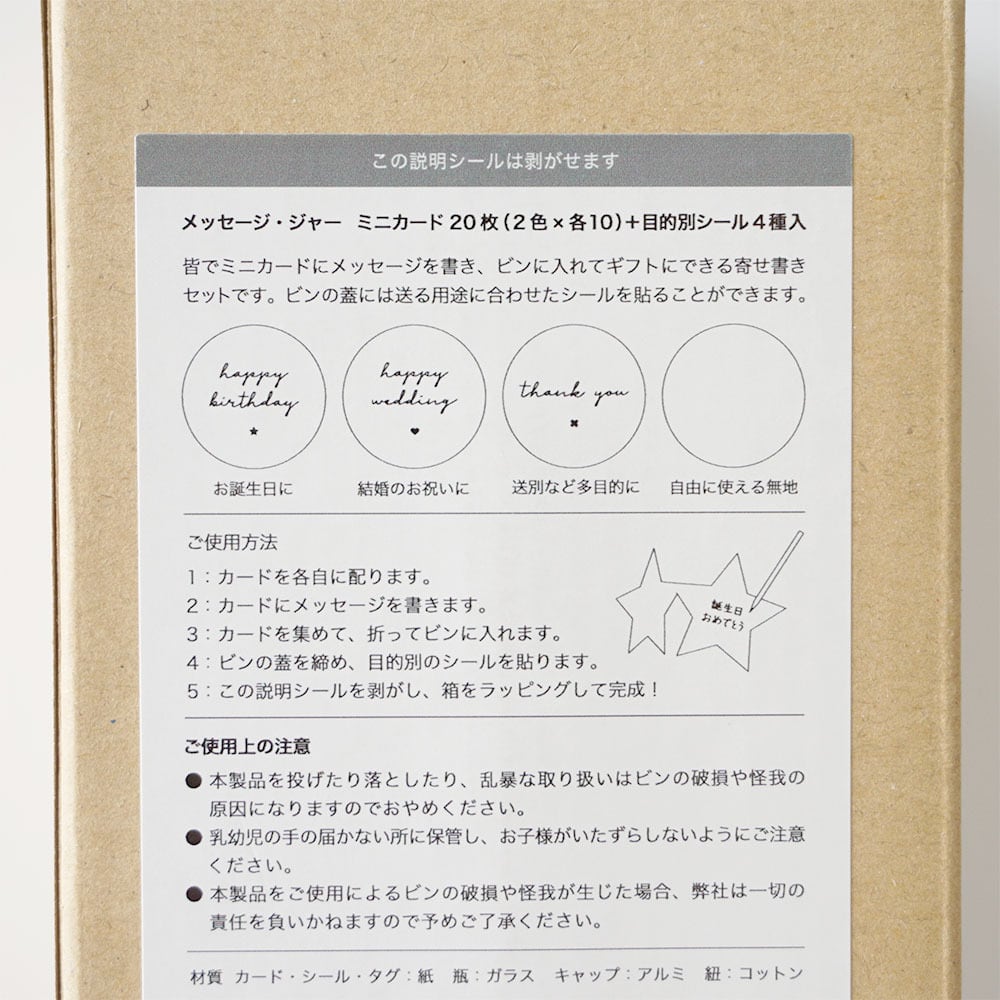 この説明シールは剥がせます
メッセージ・ジャー ミニカード20枚(2色×各10)+目的別シール4種入
皆でミニカードにメッセージを書き、ビンに入れてギフトにできる寄せ書き
セットです。ビンの蓋には送る用途に合わせたシールを貼ることができます。
happy
birthday
happy
wedding
thank you
お誕生日に
結婚のお祝いに
送別など多目的に
自由に使える無地
ご使用方法
1:カードを各自に配ります。
2:カードにメッセージを書きます。
3:カードを集めて、折ってビンに入れます。
4:ビンの蓋を締め、目的別のシールを貼ります。
5:この説明シールを剥がし、箱をラッピングして完成!
誕生日
おめでとう
ご使用上の注意
●本製品を投げたり落としたり、乱暴な取り扱いはビンの破損や怪我の
原因になりますのでおやめください。
●乳幼児の手の届かない所に保管し、お子様がいたずらしないようにご注意
ください。
●本製品をご使用によるビンの破損や怪我が生じた場合、弊社は一切の
責任を負いかねますので予めご了承ください。
材質 カード・シール・タグ:紙 瓶:ガラス キャップ:アルミ 紐:コットン